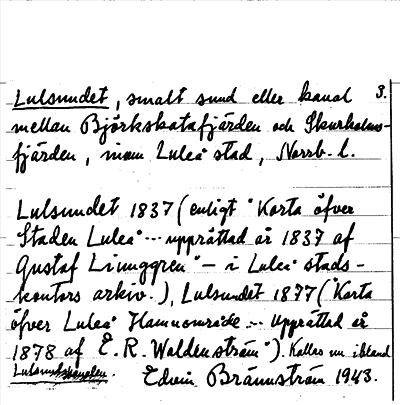 Lulsundet, smalt sund eller kanal 3.
mellan Björkskatafjärden och Skurholms-
fjärden, inom Luleå stad, Norrb. l.
Lulsundet 1837 (enligt "Karta öfver
Staden Luleå ... upprättad år 1837 af
Gustaf Linnggren" – i Luleå stads-
kontors arkiv.), Lulsundet 1877 ("Karta
öfver Luleå Hamnområde ... Upprättad år
1878 af E. R. Waldenström"). Kallas nu ibland
Lulsundskanalen. Edvin Brännström 1943.